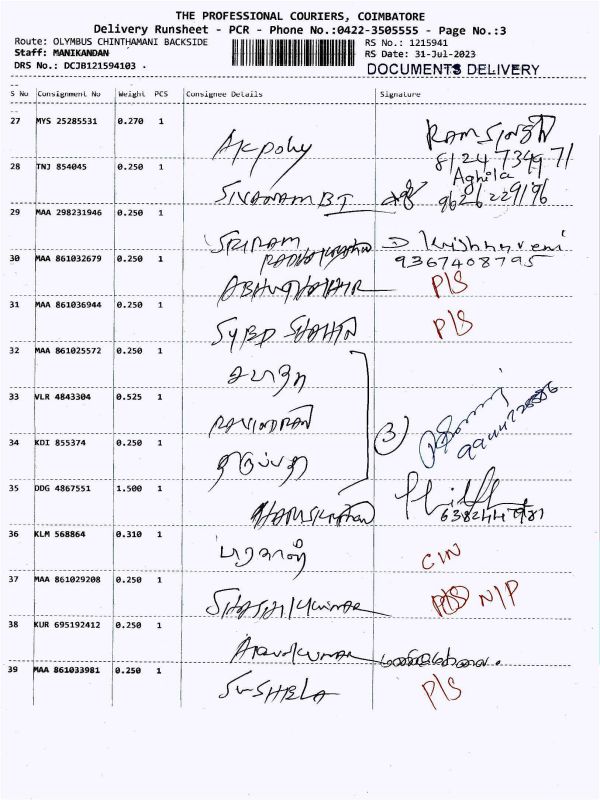 THE PROFESSIONAL COURIERS, COIMBATORE
Delivery Runsheet - PCR - Phone No.:0422-3505555 - Page No.:3
Route: OLYMBUS CHINTHAMANI BACKSIDE RS No.: 1215941
Staff: MANIKANDAN RS Date: 31-Jul-2023
DRS No.: DCJB121594103 . DOCUMENTS DELIVERY
S No Consignment No Weight PCS Consignee Details Signature
27 MYS 25285531 0.270 1
RAMSINGH
8124734971
28 TNJ 854045 0.250 1
Aghila
SIVANAMBI 9626229196
29 MAA 298231946 0.250 1
SRIRAM D Krishnaveni
9367408795
30 MAA 861032679 0.250 1
P/S
31 MAA 861036944 0.250 1
SYED P/S
32 MAA 861025572 0.250 1
33 VLR 4843304 0.525 1
RAVINDRAN
3
34 KDI 855374 0.250 1
35 DDG 4867551 1.500 1
36 KLM 568864 0.310 1
C/N
37 MAA 861029208 0.250 1
SHASHIKUMAR P/S N/P
38 KUR 695192412 0.250 1
ARUNKUMAR
39 MAA 861033981 0.250 1
SUSHELA P/S